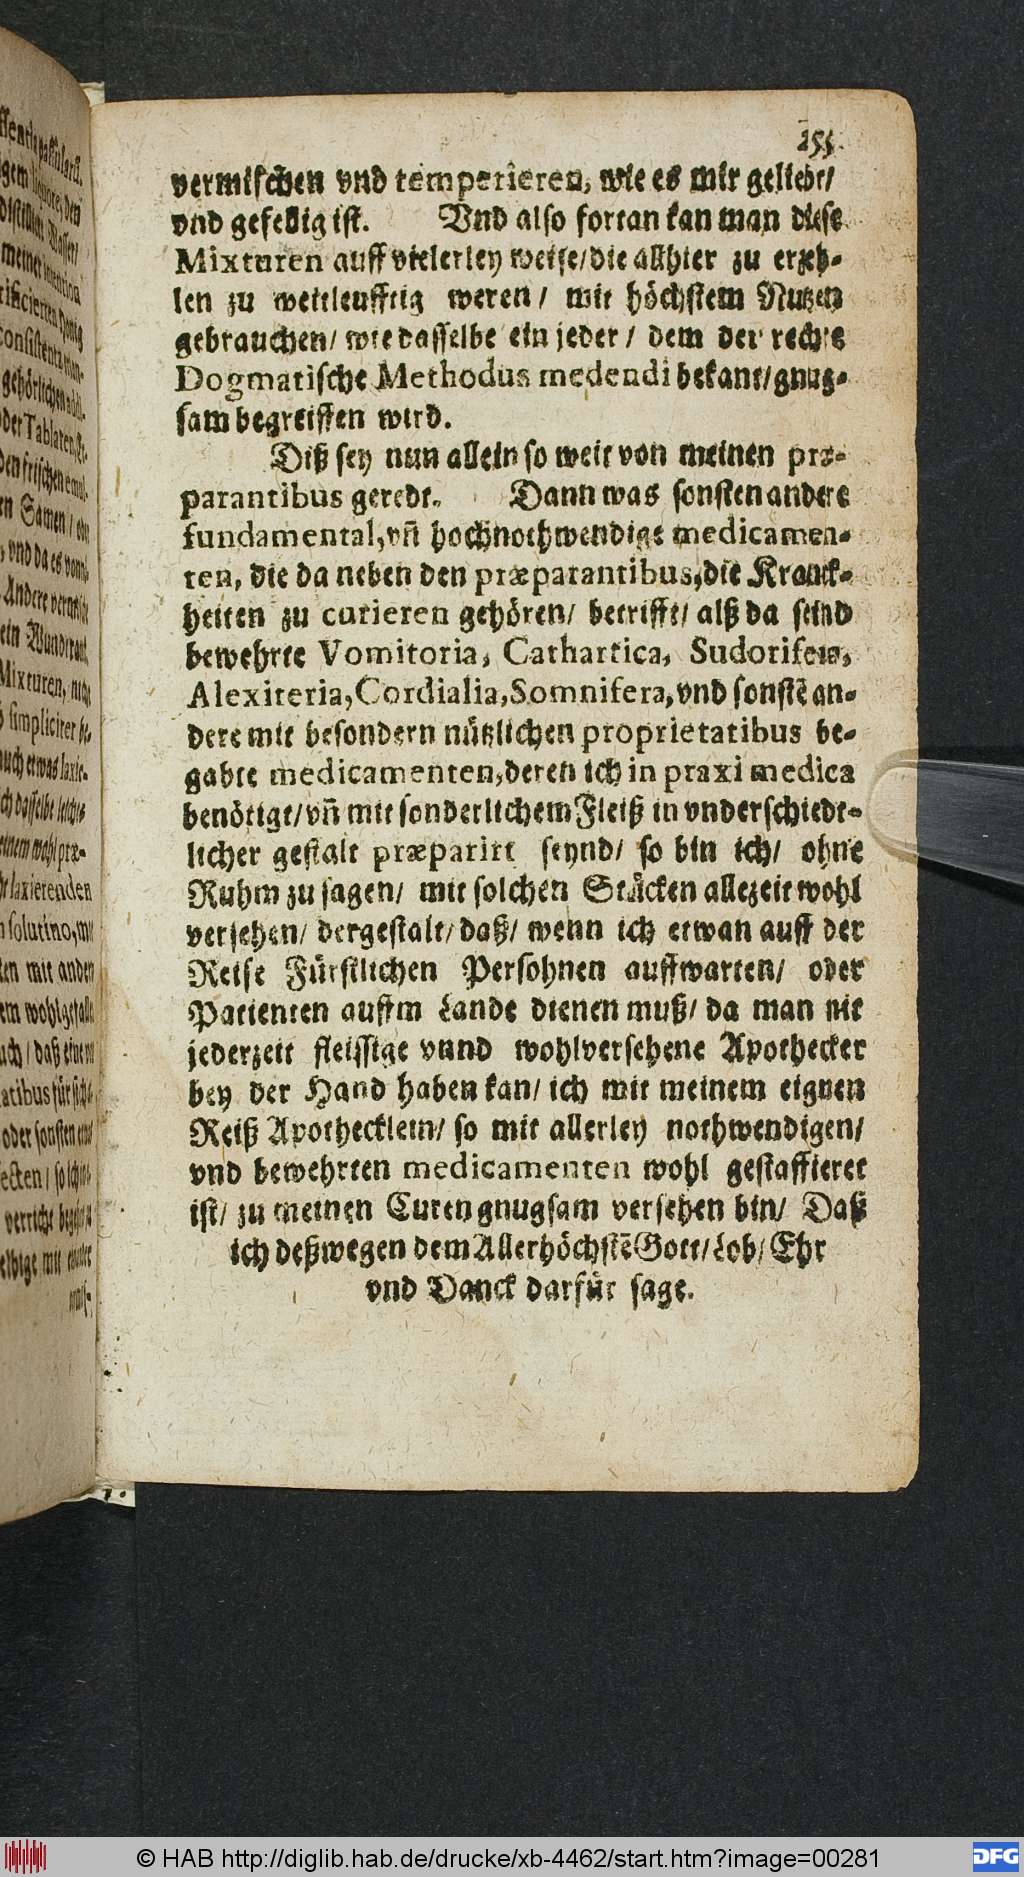 255.
vermischen vnd temperieren, wie es mir geliebt/
vnd gefellig ist. Vnd also fortan kan man diese
Mixturen auff vielerley weise/die allhier zu erzeh-
len zu weitleufftig weren/ mit höchstem Nutzen
gebrauchen/ wie dasselbe ein jeder/ dem der rechte
Dogmatische Methodus medendi bekant/gnug-
sam begreiffen wird.
Diß sey nun allein so weit von meinen præ-
parantibus geredt. Dann was sonsten andere
fundamental, vn̄ hochnothwendige medicamen-
ten, die da neben den præparantibus, die Kranck-
heiten zu curieren gehören/ betrifft/ alß da seind
bewehrte Vomitoria, Cathartica, Sudorifera,
Alexiteria, Cordialia, Somnifera, vnd sonstē an-
dere mit besondern nützlichen proprietatibus be-
gabte medicamenten, deren ich in praxi medica
benötigt/ vn̄ mit sonderlichem Fleiß in vnderschiedt-
licher gestalt præparirt seynd/ so bin ich/ ohne
Ruhm zu sagen/ mit solchen Stücken allezeit wohl
versehen/ dergestalt/ daß/ wenn ich etwan auff der
Reise Fürstlichen Persohnen auffwarten/ oder
Patienten auffm Lande dienen muß/ da man nit
jederzeit fleissige vnnd wohlversehene Apothecker
bey der Hand haben kan/ ich mit meinem eignen
Reiß Apothecklein/ so mit allerley nothwendigen/
vnd bewehrten medicamenten wohl gestaffieret
ist/ zu meinen Curen gnugsam versehen bin/ Daß
ich deßwegen dem Allerhöchstē Gott/ Lob/ Ehr
vnd Danck darfür sage.
© HAB http://diglib.hab.de/drucke/xb-4462/start.htm?image=00281
DFG